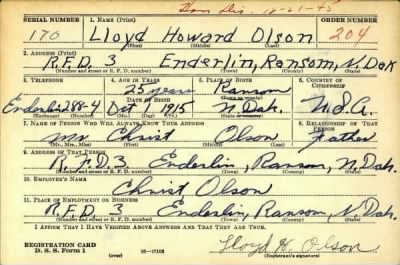 Hon Dis. 12-21-45
SERIAL NUMBER 1. NAME (Print) ORDER NUMBER
170 Lloyd Howard Olson 204
(First) (Middle) (Last)
2. ADDRESS (Print)
R.F.D. 3 Enderlin, Ransom, N. Dak
(Number and street or R. F. D. number) (Town) (County) (State)
3. TELEPHONE 4. AGE IN YEARS 5. PLACE OF BIRTH 6. COUNTRY OF CITIZENSHIP
25 years Ransom
DATE OF BIRTH (Town or county)
Enderlin 288-4 Oct 1 1915 N. Dak. U.S.A.
(Exchange) (Number) (Mo.) (Day) (Yr.) (State or country)
7. NAME OF PERSON WHO WILL ALWAYS KNOW YOUR ADDRESS 8. RELATIONSHIP OF THAT PERSON
Mr Christ Olson Father
(Mr., Mrs., Miss) (First) (Middle) (Last)
9. ADDRESS OF THAT PERSON
R. F. D. 3 Enderlin, Ransom, N. Dak.
(Number and street or R. F. D. number) (Town) (County) (State)
10. EMPLOYER'S NAME
Christ Olson
11. PLACE OF EMPLOYMENT OR BUSINESS
R.F.D. 3 Enderlin, Ransom, N. Dak.
(Number and street or R. F. D. number) (Town) (County) (State)
I AFFIRM THAT I HAVE VERIFIED ABOVE ANSWERS AND THAT THEY ARE TRUE.
REGISTRATION CARD
D. S. S. Form 1 (over) Lloyd H. Olson
(Registrant's signature)